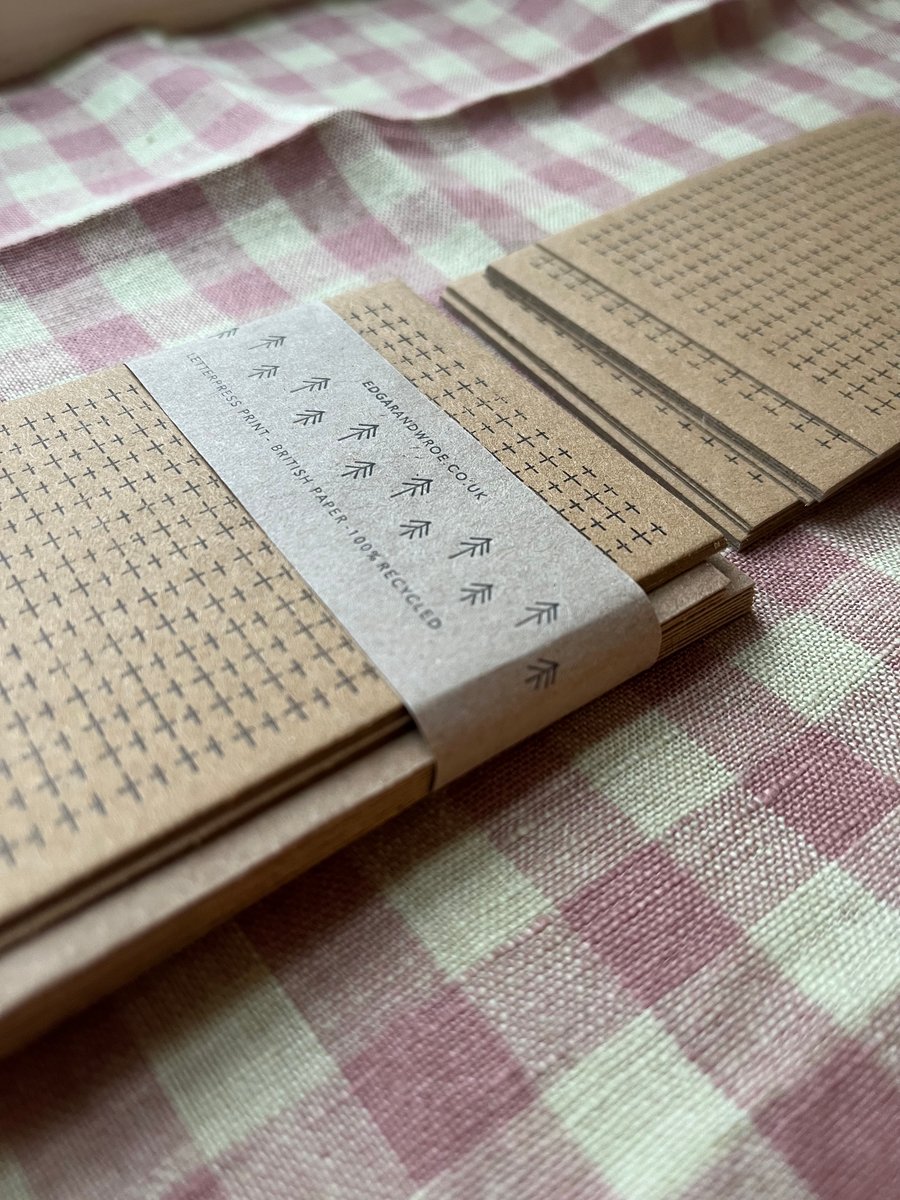 EDGARANDWROE.CO.UK
LETTERPRESS PRINT · BRITISH PAPER · 100% RECYCLED